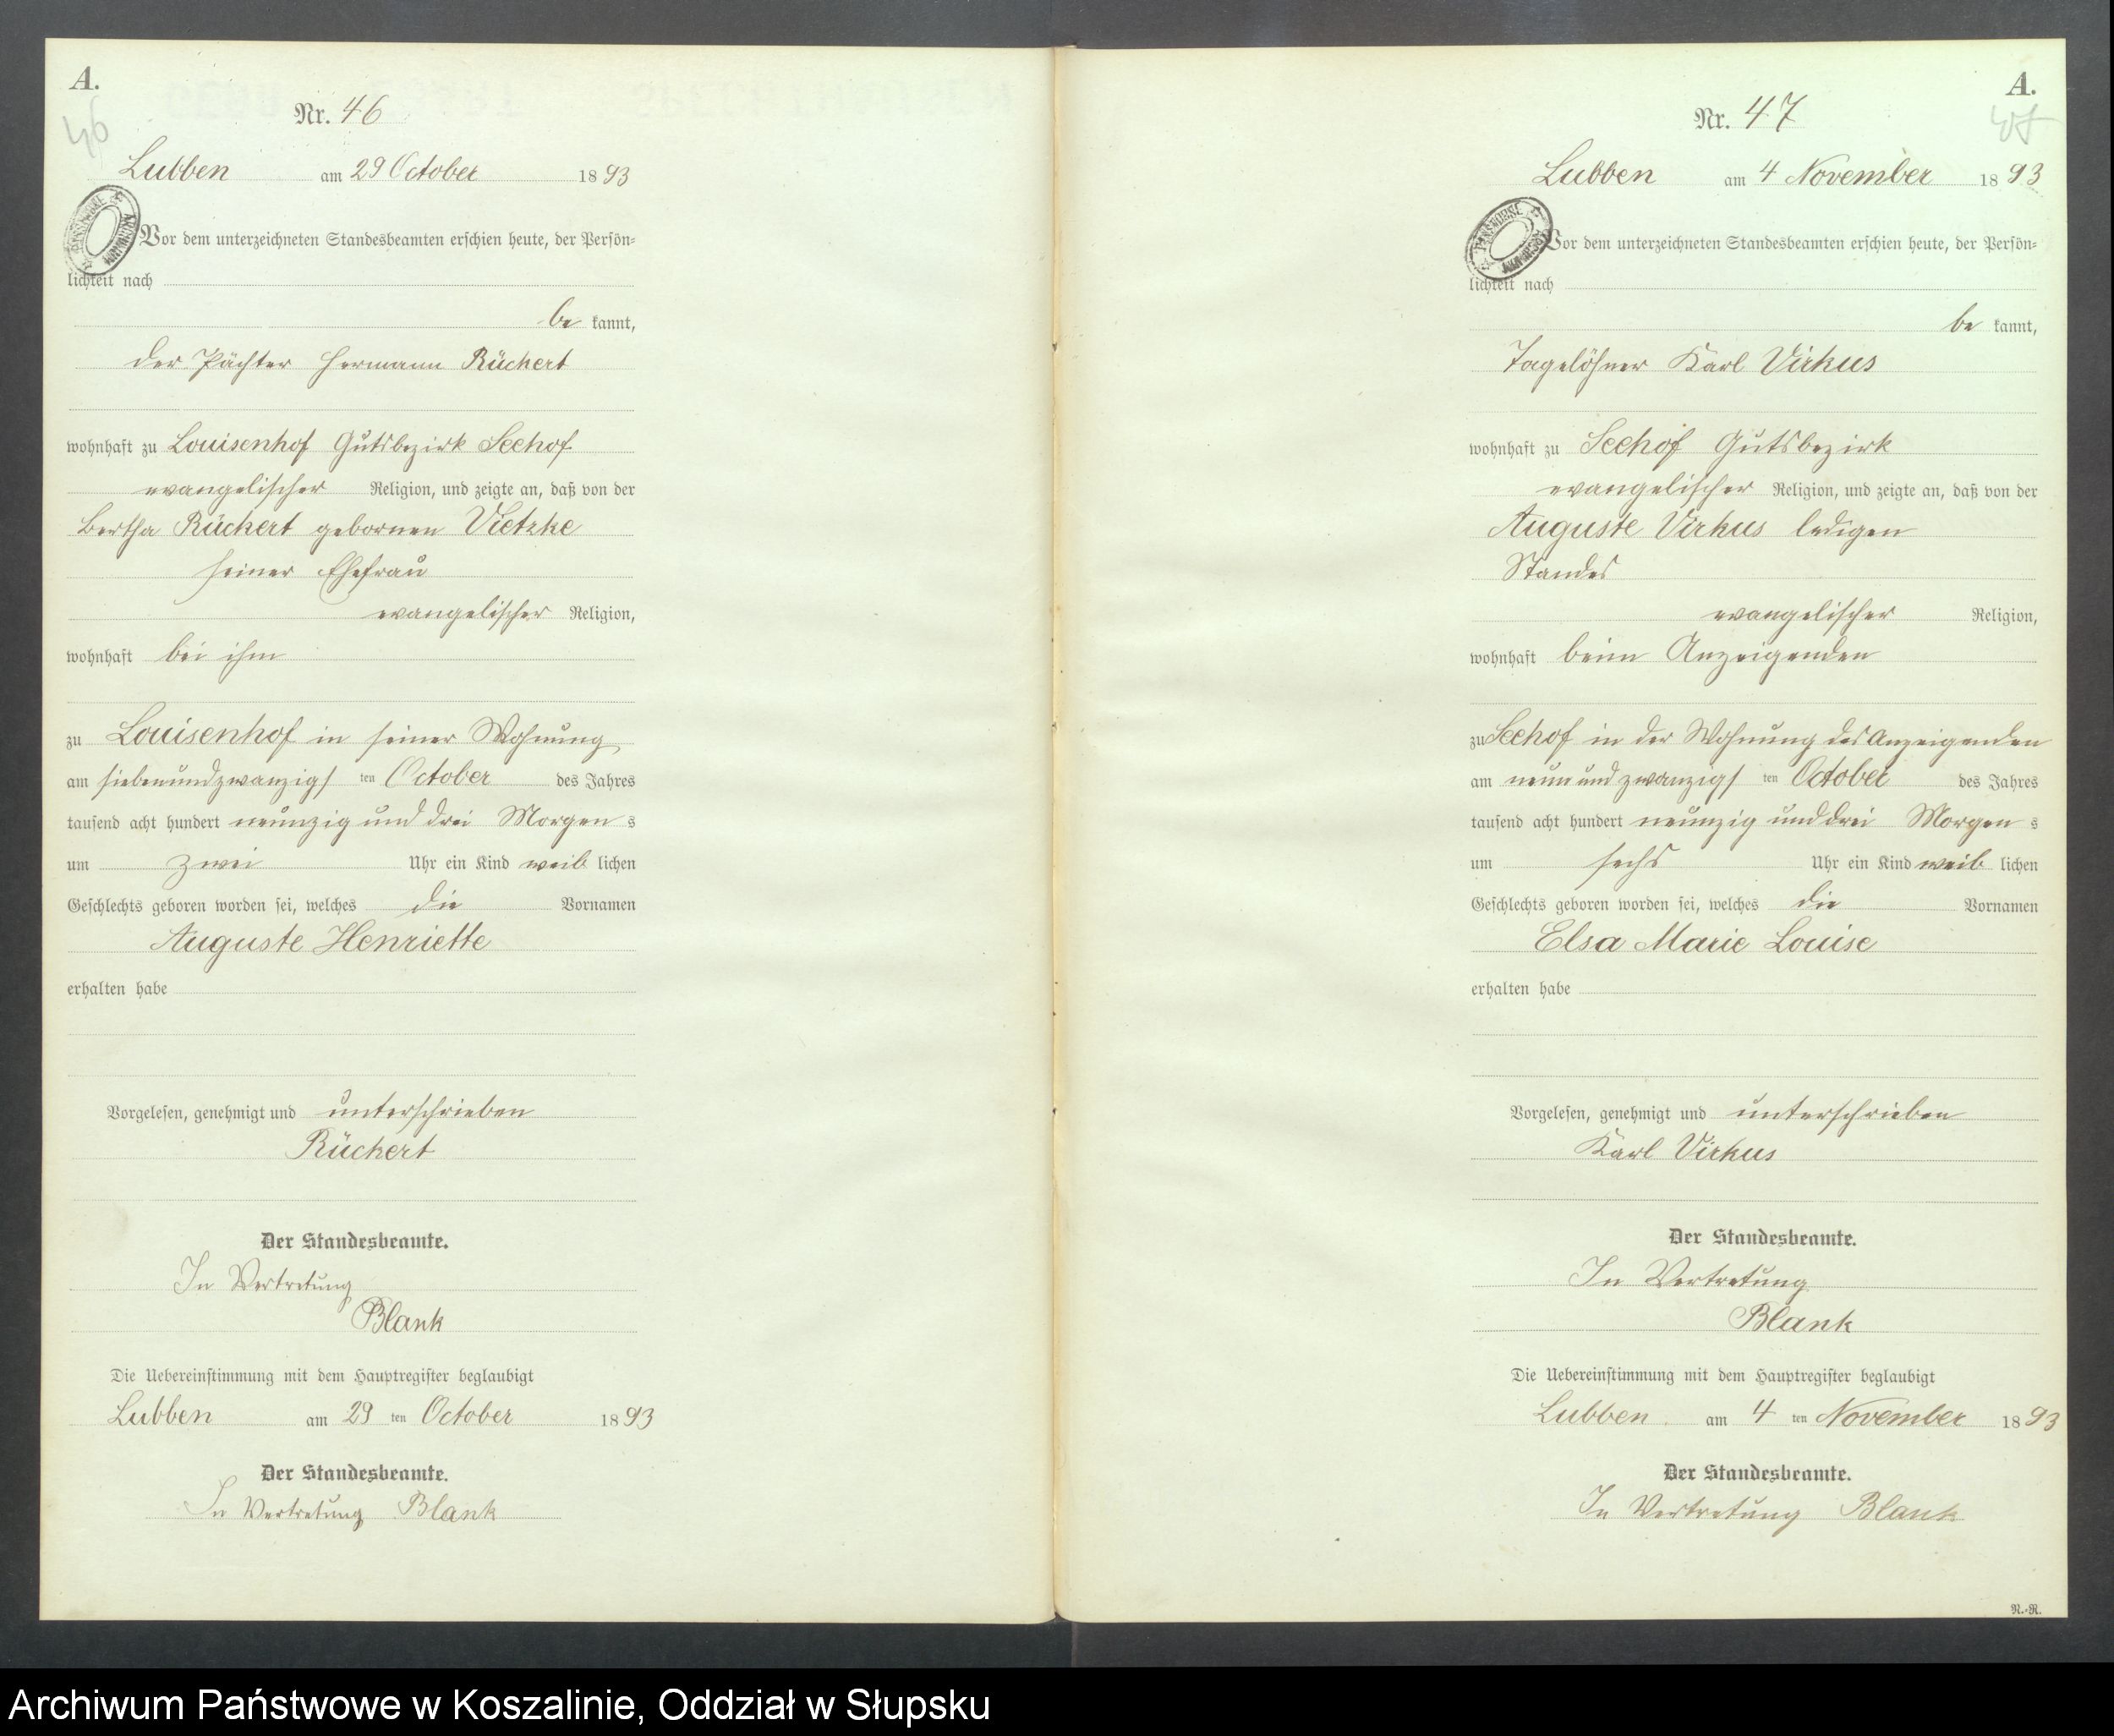 A.
46
Nr. 46
Lubben am 29 October 1893
Vor dem unterzeichneten Standesbeamten erschien heute, der Persön=
lichkeit nach
be kannt,
der Pächter Hermann Rückert
wohnhaft zu Louisenhof Gutsbezirk Seehof
evangelischer Religion, und zeigte an, daß von der
Bertha Rückert gebornen Vietzke
seiner Ehefrau
evangelischer Religion,
wohnhaft bei ihm
zu Louisenhof in seiner Wohnung
am siebenundzwanzigs ten October des Jahres
tausend acht hundert neunzig und drei Morgen s
um zwei Uhr ein Kind weib lichen
Geschlechts geboren worden sei, welches die Vornamen
Auguste Henriette
erhalten habe
Vorgelesen, genehmigt und unterschrieben
Rückert
Der Standesbeamte.
In Vertretung
Blank
Die Uebereinstimmung mit dem Hauptregister beglaubigt
Lubben am 29 ten October 1893
Der Standesbeamte.
In Vertretung Blank
A.
47
Nr. 47
Lubben am 4 November 1893
Vor dem unterzeichneten Standesbeamten erschien heute, der Persön=
lichkeit nach
be kannt,
Tagelöhner Karl Virkus
wohnhaft zu Seehof Gutsbezirk
evangelischer Religion, und zeigte an, daß von der
Auguste Virkus ledigen
Standes
evangelischer Religion,
wohnhaft beim Anzeigenden
zu Seehof in der Wohnung des Anzeigenden
am neunundzwanzigs ten October des Jahres
tausend acht hundert neunzig und drei Morgen s
um sechs Uhr ein Kind weib lichen
Geschlechts geboren worden sei, welches die Vornamen
Elsa Marie Louise
erhalten habe
Vorgelesen, genehmigt und unterschrieben
Karl Virkus
Der Standesbeamte.
In Vertretung
Blank
Die Uebereinstimmung mit dem Hauptregister beglaubigt
Lubben am 4 ten November 1893
Der Standesbeamte.
In Vertretung Blank
N.=R.
Archiwum Państwowe w Koszalinie, Oddział w Słupsku